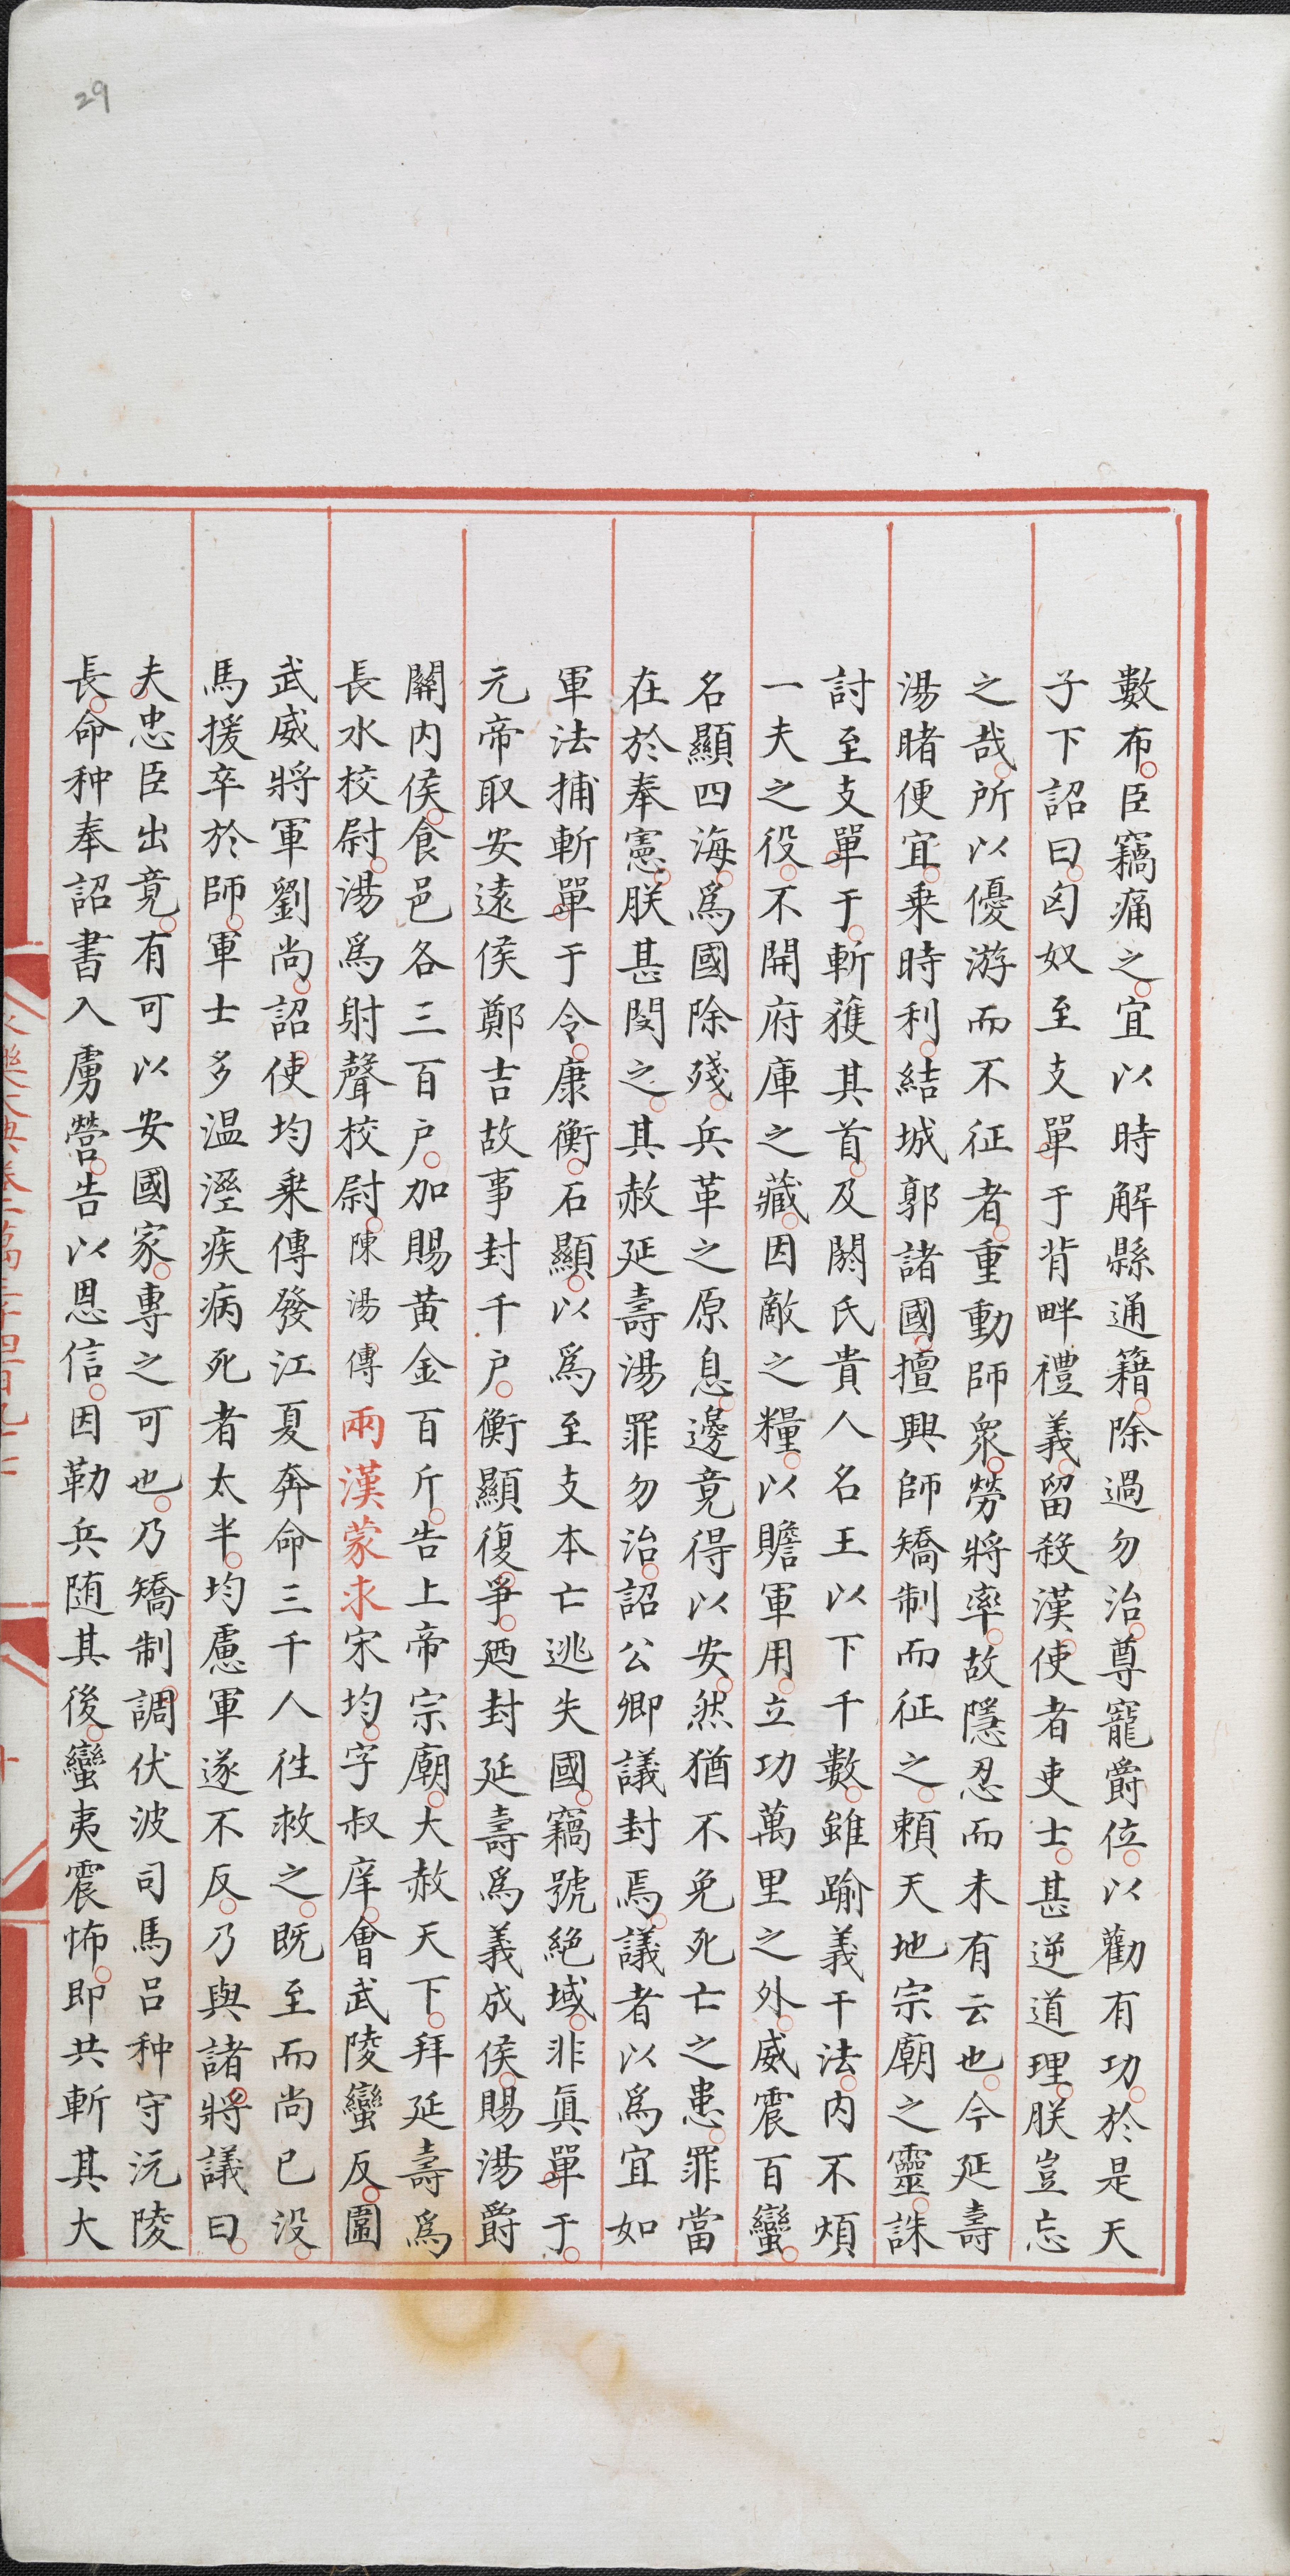 數布臣竊痛之宜以時解縣通籍除過勿治尊寵爵位以勸有功於是天
子下詔曰匈奴至支單于背畔禮義留殺漢使者吏士甚逆道理朕豈忘
之哉所以優游而不征者重動師衆勞將率故隱忍而未有云也今延壽
湯睹便宜乗時利結城郭諸國擅興師矯制而征之頼天地宗廟之靈誅
討至支單于斬獲其首及閼氏貴人名王以下千數雖踰義干法内不煩
一夫之役不開府庫之藏因敵之糧以贍軍用立功萬里之外威震百蠻
名顯四海爲國除殘兵革之原息邊竟得以安然猶不免死亡之患罪當
在於奉憲朕甚閔之其赦延壽湯罪勿治詔公卿議封焉議者以爲宜如
軍法捕斬單于令康衡石顯以爲至支本亡逃失國竊號絶域非眞單于
元帝取安遠侯鄭吉故事封千户衡顯復爭廼封延壽爲義成侯賜湯爵
關内侯食邑各三百户加賜黄金百斤告上帝宗廟大赦天下拜延壽爲
長水校尉湯爲射聲校尉陳湯傳兩漢蒙求宋均字叔庠會武陵蠻反圍
武威將軍劉尚詔使均乗傳發江夏奔命三千人徃救之既至而尚已没
馬援卒於師軍士多温溼疾病死者太半均慮軍遂不反乃與諸將議曰
夫忠臣出竟有可以安國家專之可也乃矯制調伏波司馬吕种守沅陵
長命种奉詔書入虜營告以恩信因勒兵随其後蠻夷震怖即共斬其大
29